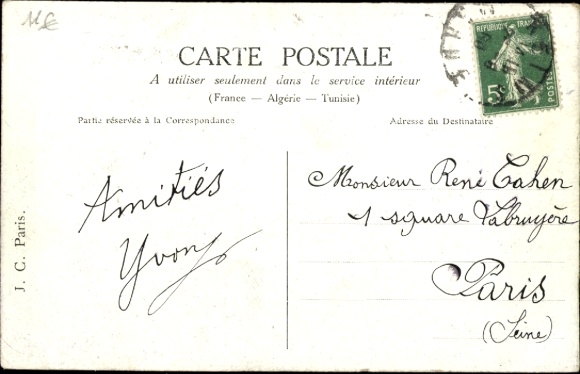 CARTE POSTALE
A utiliser seulement dans le service intérieur
(France — Algérie — Tunisie)
Partie réservée à la Correspondance
Adresse du Destinataire
REPUBLIQUE FRANC
5c
POSTES
J. C. Paris.
Amitiés
Yvon
Monsieur René Cahen
1 square Labruyère
Paris
(Seine)